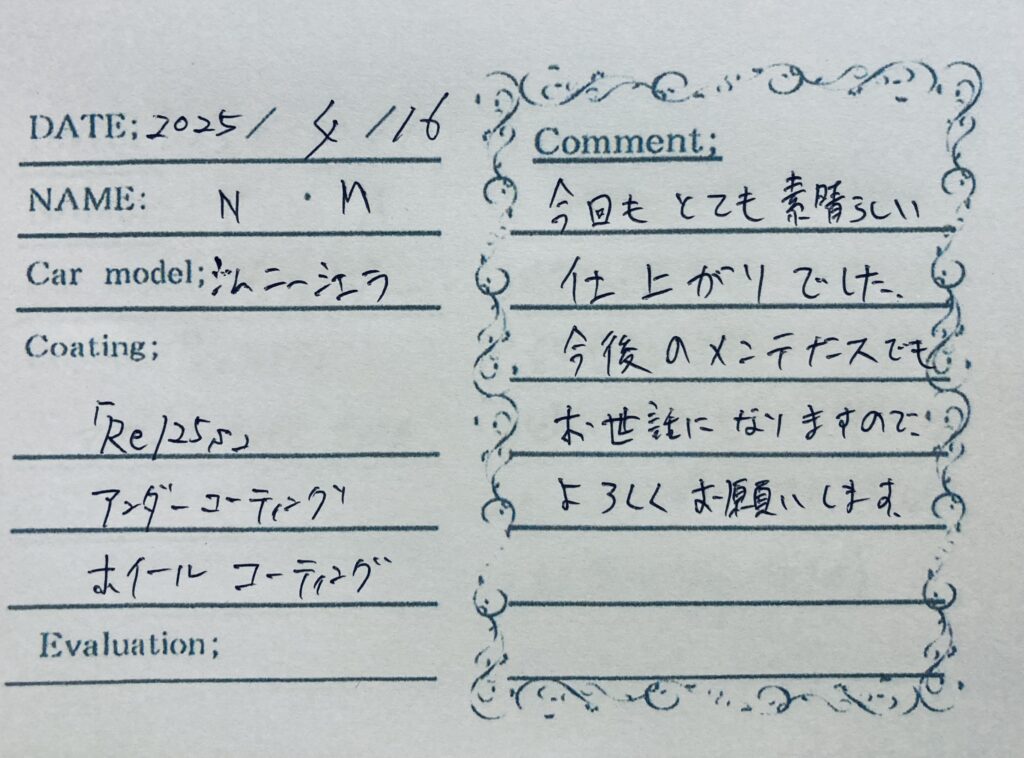 DATE; 2025/ 4 /16
NAME: N ・ M
Car model; ジムニーシエラ
Coating;
アンダーコーティング
ホイールコーティング
Evaluation;
Comment;
今回もとても素晴らしい
仕上がりでした。
今後のメンテナスでも
お世話になりますので、
よろしくお願いします。